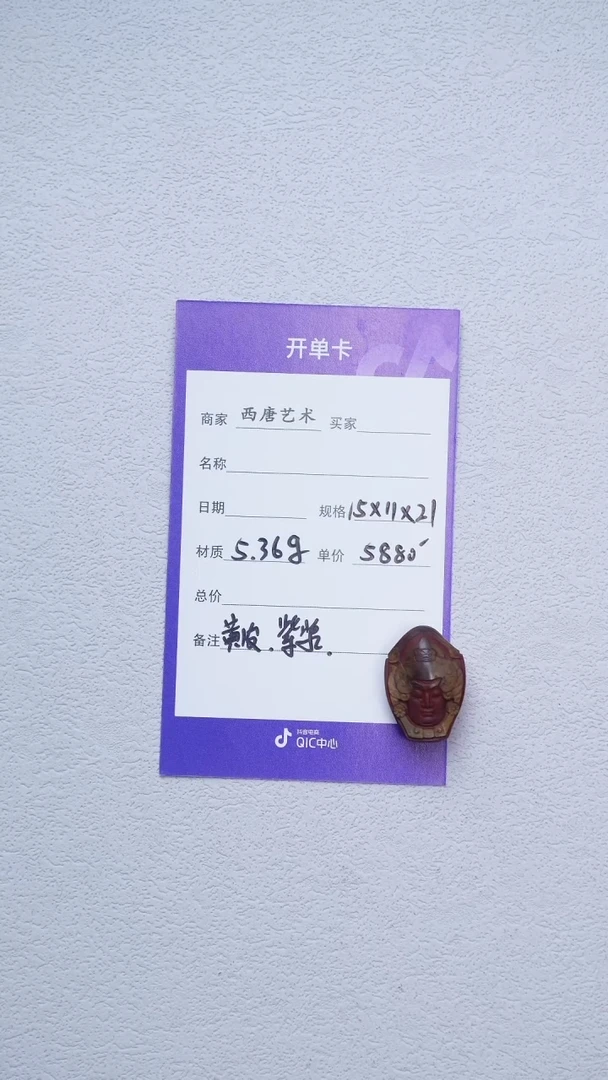 开单卡
商家 西唐艺术 买家
名称
日期 规格 15X11X21
材质 5.36g 单价 5880
总价
备注 黄皮、紫岩.
抖音电商
QIC中心